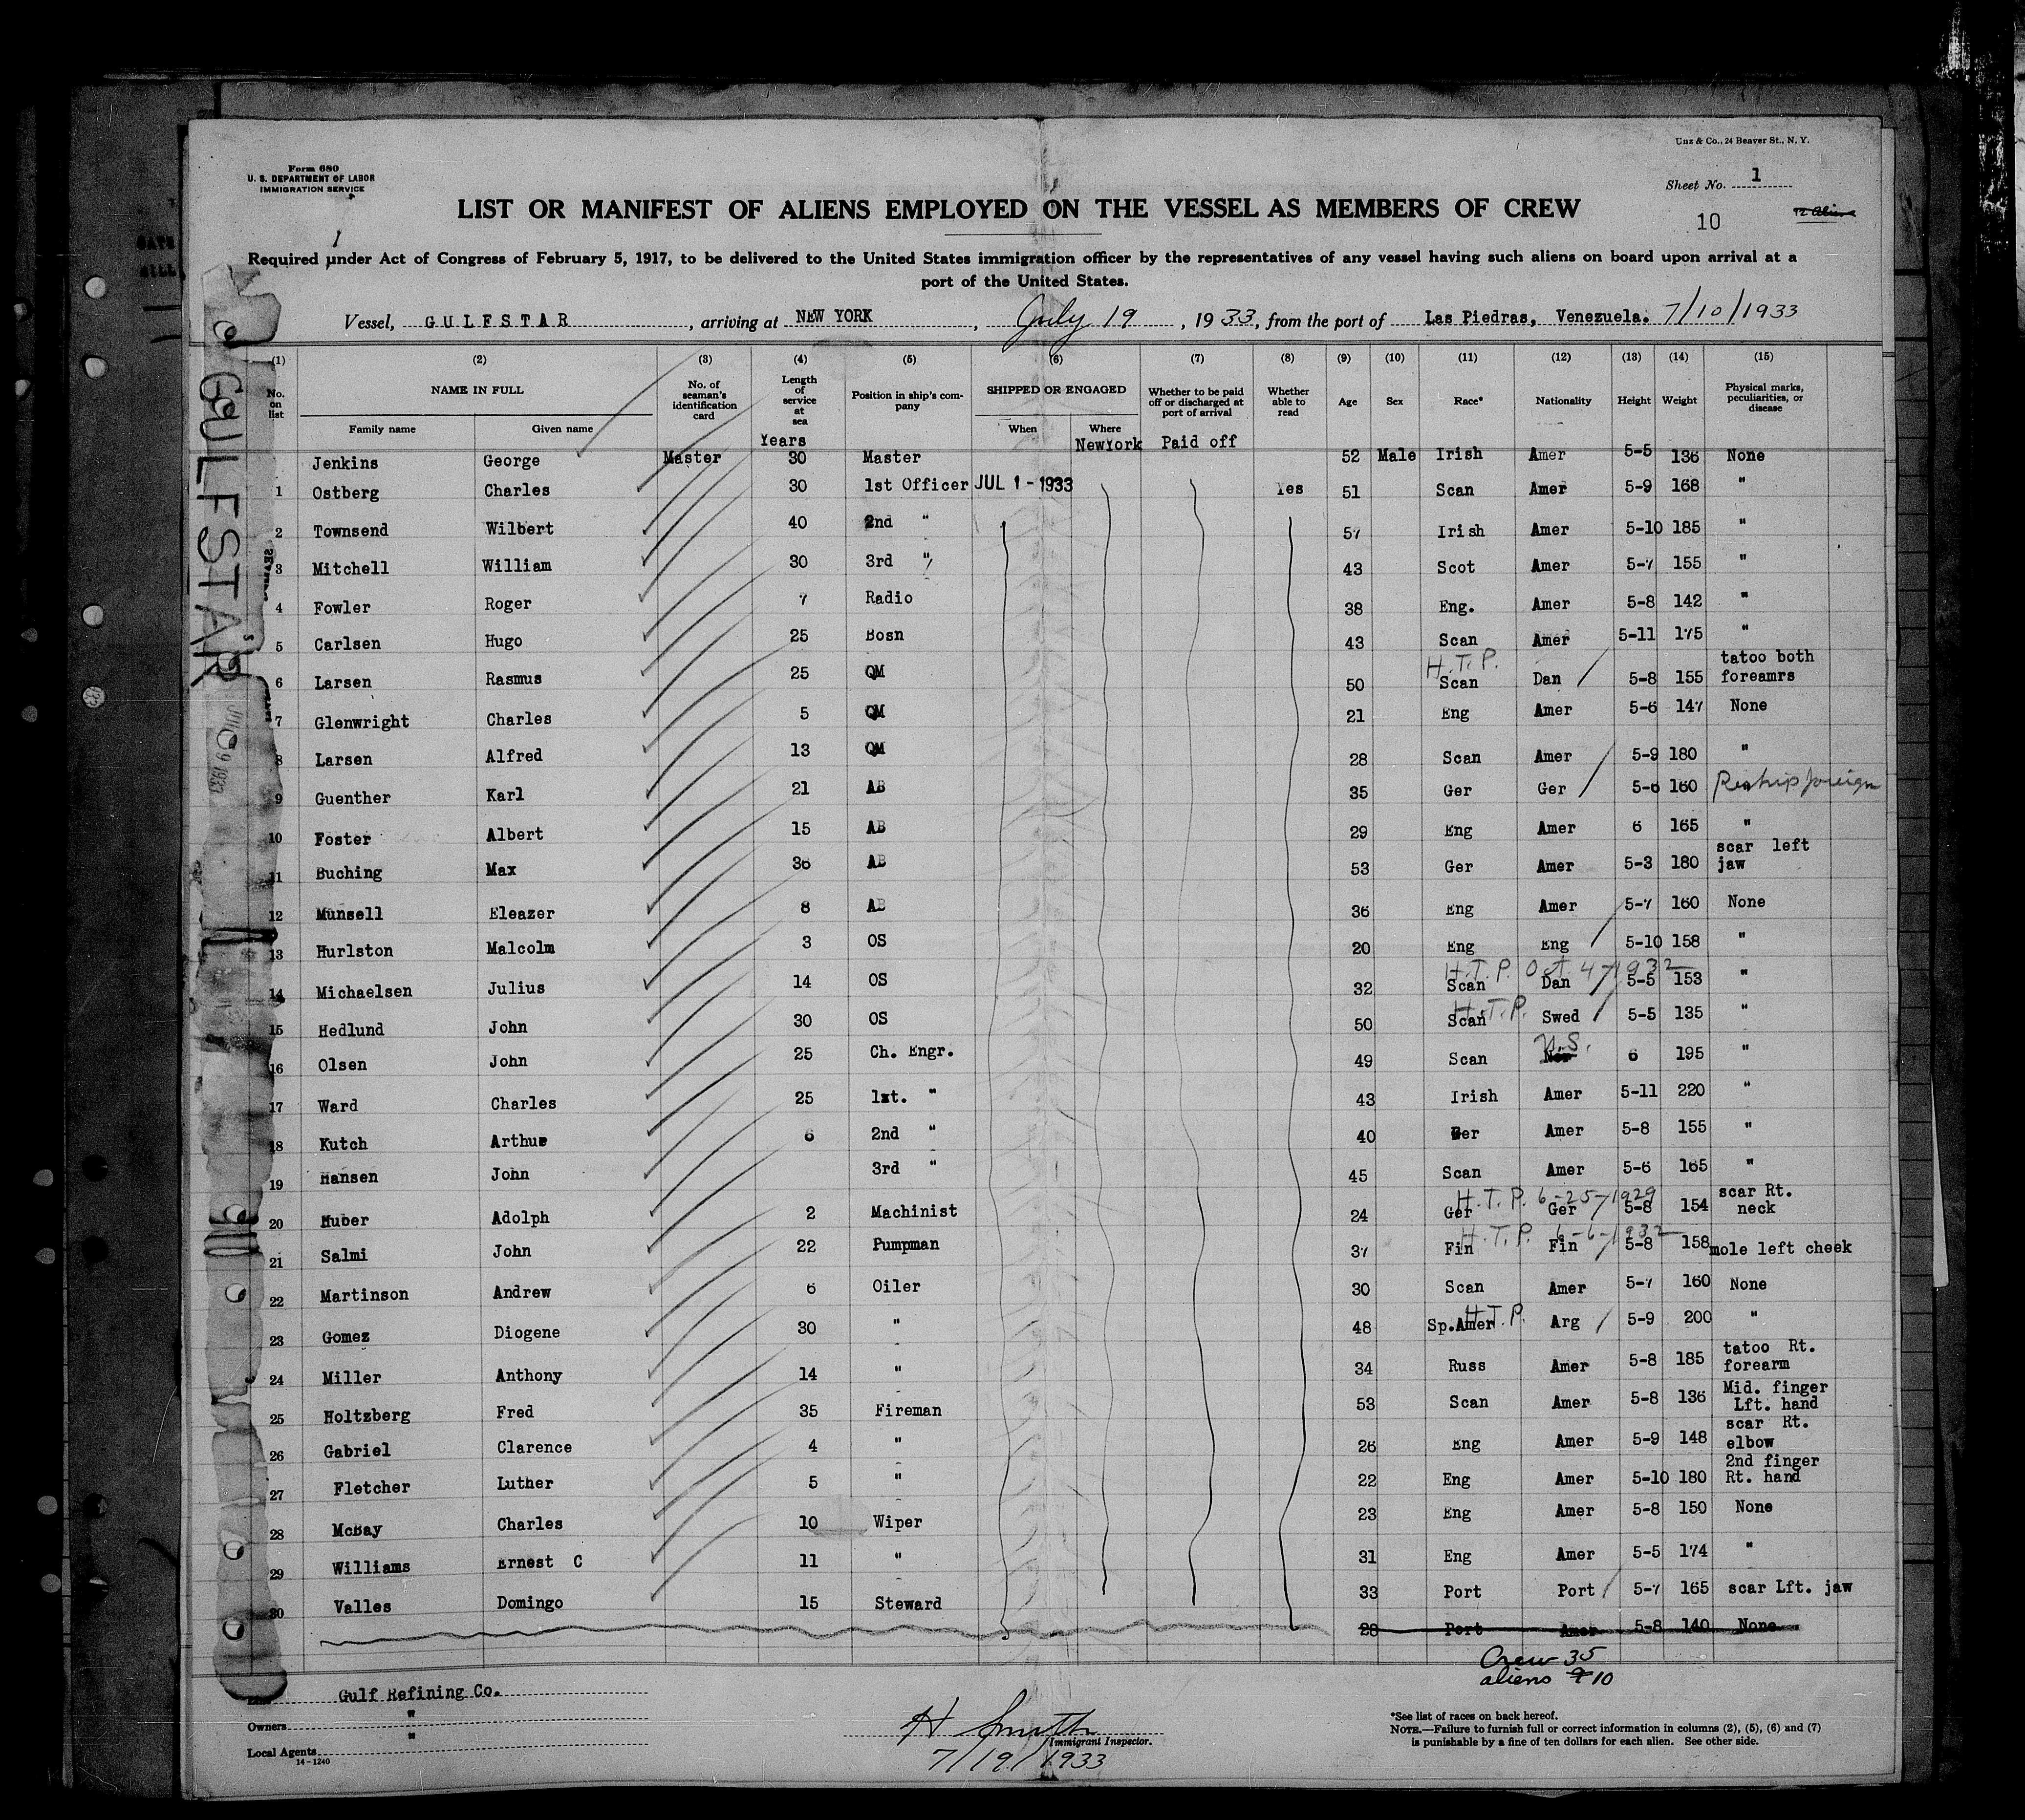 Unz & Co., 24 Beaver St., N. Y.
Form 680
U. S. DEPARTMENT OF LABOR
IMMIGRATION SERVICE
Sheet No. 1
LIST OR MANIFEST OF ALIENS EMPLOYED ON THE VESSEL AS MEMBERS OF CREW
10
Required under Act of Congress of February 5, 1917, to be delivered to the United States immigration officer by the representatives of any vessel having such aliens on board upon arrival at a
port of the United States.
Vessel, GULFSTAR, arriving at NEW YORK, July 19, 1933, from the port of Las Piedras, Venezuela. 7/10/1933
GULFSTAR
(1) (2) (3) (4) (5) (6) (7) (8) (9) (10) (11) (12) (13) (14) (15)
No. on list NAME IN FULL Family name Given name No. of seaman's identification card Length of service at sea Position in ship's company SHIPPED OR ENGAGED When Where Whether to be paid off or discharged at port of arrival Whether able to read Age Sex Race* Nationality Height Weight Physical marks, peculiarities, or disease
Years NewYork Paid off
Jenkins George Master 30 Master 52 Male Irish Amer 5-5 136 None
1 Ostberg Charles 30 1st Officer JUL 1 - 1933 Yes 51 Scan Amer 5-9 168 "
2 Townsend Wilbert 40 2nd " 57 Irish Amer 5-10 185 "
3 Mitchell William 30 3rd " 43 Scot Amer 5-7 155 "
4 Fowler Roger 7 Radio 38 Eng. Amer 5-8 142 "
5 Carlsen Hugo 25 Bosn 43 Scan Amer 5-11 175 "
6 Larsen Rasmus 25 QM 50 H.T.P. Scan Dan 5-8 155 tatoo both foreamrs
7 Glenwright Charles 5 QM 21 Eng Amer 5-6 147 None
8 Larsen Alfred 13 QM 28 Scan Amer 5-9 180 "
9 Guenther Karl 21 AB 35 Ger Ger 5-6 160 Reship foreign
10 Foster Albert 15 AB 29 Eng Amer 6 165 "
11 Buching Max 36 AB 53 Ger Amer 5-3 180 scar left jaw
12 Munsell Eleazer 8 AB 36 Eng Amer 5-7 160 None
13 Hurlston Malcolm 3 OS 20 Eng Eng 5-10 158 "
14 Michaelsen Julius 14 OS 32 H.T.P. Oct. 4-1932 Scan Dan 5-5 153 "
15 Hedlund John 30 OS 50 H.T.P. Scan Swed 5-5 135 "
16 Olsen John 25 Ch. Engr. 49 Scan Nor U.S. 6 195 "
17 Ward Charles 25 1st. " 43 Irish Amer 5-11 220 "
18 Kutch Arthur 6 2nd " 40 Ger Amer 5-8 155 "
19 Hansen John 3rd " 45 Scan Amer 5-6 165 "
20 Huber Adolph 2 Machinist 24 H.T.P. 6-25-1929 Ger Ger 5-8 154 scar Rt. neck
21 Salmi John 22 Pumpman 37 H.T.P. 6-6-1932 Fin Fin 5-8 158 mole left cheek
22 Martinson Andrew 6 Oiler 30 Scan Amer 5-7 160 None
23 Gomez Diogene 30 " 48 Sp.Amer H.T.P. Arg 5-9 200 "
24 Miller Anthony 14 " 34 Russ Amer 5-8 185 tatoo Rt. forearm
25 Holtzberg Fred 35 Fireman 53 Scan Amer 5-8 136 Mid. finger Lft. hand
26 Gabriel Clarence 4 " 26 Eng Amer 5-9 148 scar Rt. elbow
27 Fletcher Luther 5 " 22 Eng Amer 5-10 180 2nd finger Rt. hand
28 McBay Charles 10 Wiper 23 Eng Amer 5-8 150 None
29 Williams Ernest C 11 " 31 Eng Amer 5-5 174 "
30 Valles Domingo 15 Steward 33 Port Port 5-7 165 scar Lft. jaw
28 Port Amer 5-8 140 None
Crew 35
aliens 9 10
Gulf Refining Co.
Owners "
Local Agents "
14-1240
H Smith
Immigrant Inspector.
7/19/1933
*See list of races on back hereof.
NOTE.—Failure to furnish full or correct information in columns (2), (5), (6) and (7)
is punishable by a fine of ten dollars for each alien. See other side.